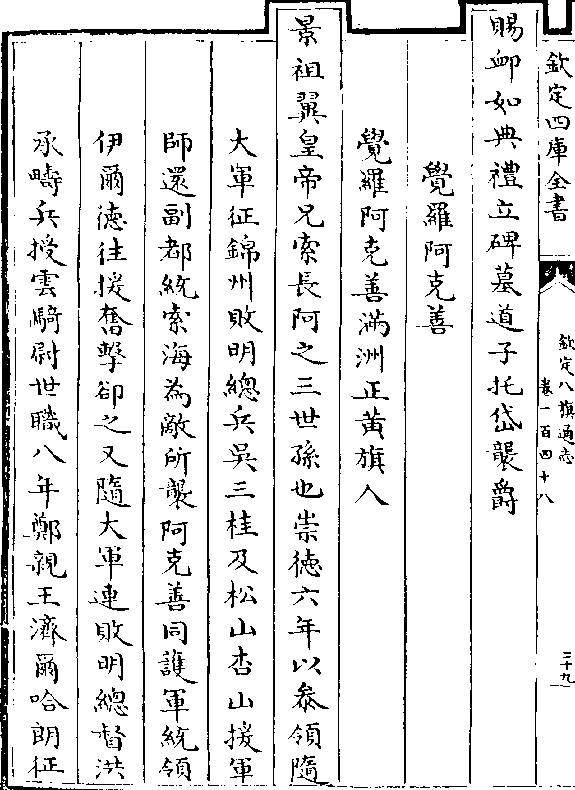 欽定四庫全書
欽定八旗通志
卷一百四十八
三十九
賜䘏如典禮立碑墓道子托岱襲爵
覺羅阿克善
覺羅阿克善滿洲正黃旗人
景祖翼皇帝兄索長阿之三世孫也崇徳六年以叅領隨
大軍征錦州敗明總兵吳三桂及松山杏山援軍
師還副都統索海為敵所襲阿克善同護軍統領
伊爾徳往援奮擊卻之又隨大軍連敗明總督洪
承疇兵授雲騎尉世職八年鄭親王濟爾哈朗征